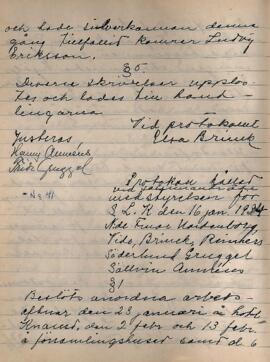 och lade silverkannan denna
gång tillfallit kamrer Ludvig
Eriksson.
§ 5
Diverse skrivelser upplös-
tes och lades till hand-
lingarna
Vid protokollet
Justeras Elsa Brinck
Hanny Amnéus
Thide Gruggel
No 41
Protokoll hållet
vid
med styrelse för
S. L. K den 16 jan. 1934
Nde Fruar Hallenborg,
Tide, Brinck, Renhers
Söderlund Gruggel
Sällvin Amnéus
§ 1
Beslöts anordna arbets-
aftnar den 23 januari å hotell
Knaust, den 2 febr och 13 febr
å församlingshuset samt d. 6